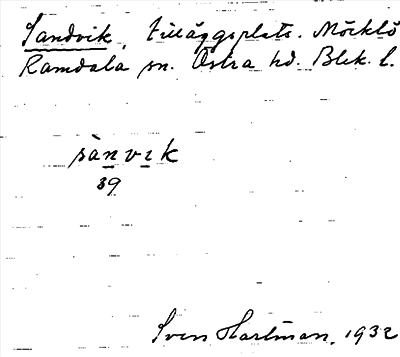 Sandvik, tilläggsplats. Möcklö
Ramdala sn. Östra hd. Blek. l.
sànvɪk
39
Sven Hartman, 1932